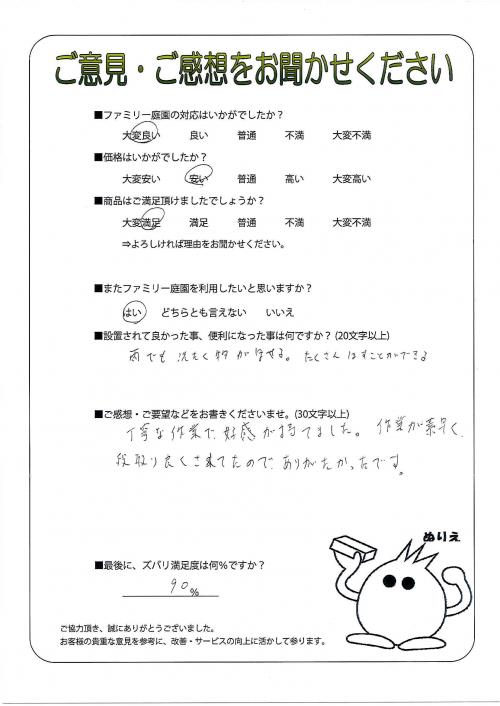 ご意見・ご感想をお聞かせください
■ファミリー庭園の対応はいかがでしたか？
大変良い 良い 普通 不満 大変不満
■価格はいかがでしたか？
大変安い 安い 普通 高い 大変高い
■商品はご満足頂けましたでしょうか？
大変満足 満足 普通 不満 大変不満
⇒よろしければ理由をお聞かせください。
■またファミリー庭園を利用したいと思いますか？
はい どちらとも言えない いいえ
■設置されて良かった事、便利になった事は何ですか？(20文字以上)
雨でも 洗たく物が ほせる。たくさん ほすことができる
■ご感想・ご要望などをお書きくださいませ。(30文字以上)
丁寧な作業で、好感が持てました。 作業が素早く、
段取り良くさ来てたので、ありがたかったです。
ぬりえ
■最後に、ズバリ満足度は何％ですか？
90％
ご協力頂き、誠にありがとうございました。
お客様の貴重な意見を参考に、改善・サービスの向上に活かして参ります。